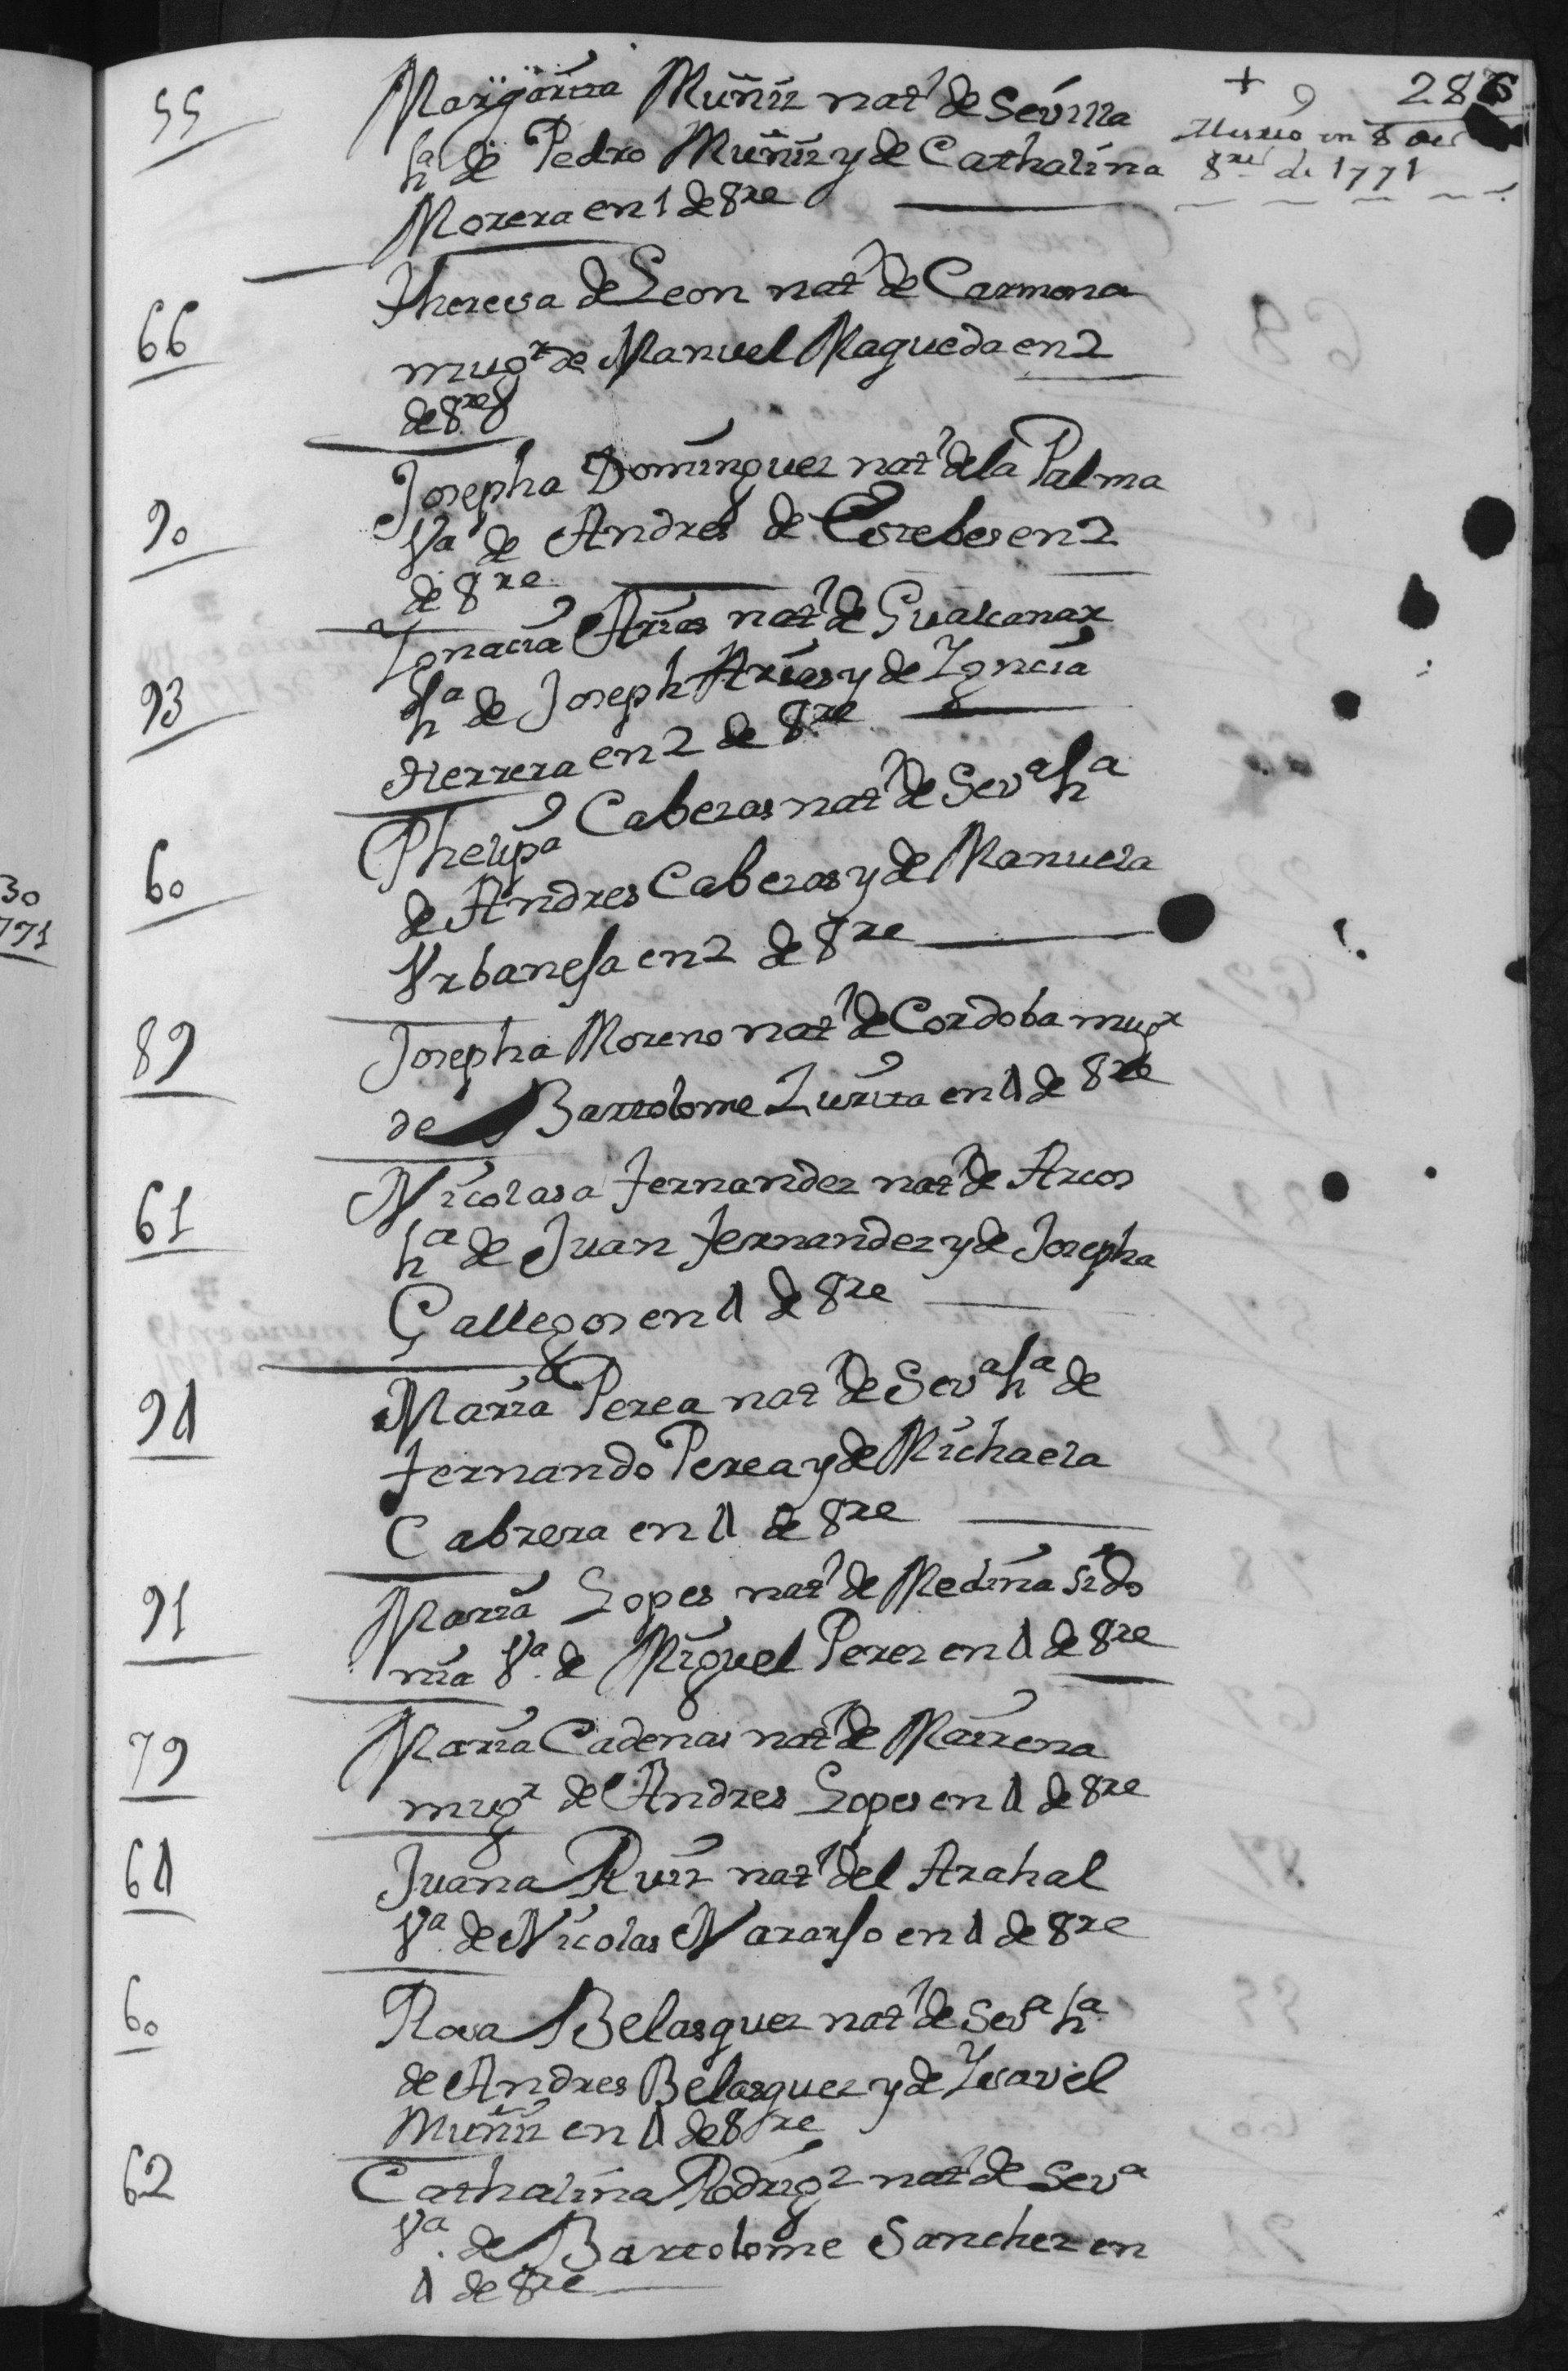 286
+ 9
55
Margarita Muñiz nat.l de Sevilla
h.a de Pedro Muñiz y de Cathalina
Morera en 1 de 8re
Murio en 8 de
8re de 1771
66
Theresa de Leon nat.l de Carmona
mug.r de Manuel Maqueda en 2
de 8re
90
Josepha Dominguez nat.l de la Palma
V.a de Andres de en 2
de 8re
93
Ignacia Arias nat.l de Gualcanar
h.a de Joseph Arias y de Igncia
Herrera en 2 de 8re
60
Phelipa Cabezas nat.l de Sev.a h.a
de Andres Cabezas y de Manuela
Vrbanesa en 2 de 8re
89
Josepha Moreno nat.l de Cordoba mug.r
de Bartolome Zurita en 4 de 8re
61
Nicolasa Fernandez nat.l de Arcos
h.a de Juan Fernandez y de Josepha
Gallegos en 4 de 8re
94
Maria Perea nat.l de Sev.a h.a de
Fernando Perea y de Michaela
Cabrera en 4 de 8re
91
Maria Lopes nat.l de Medina Sido
nia V.a de Miguel Perez en 4 de 8re
79
Maria Cadenas nat.l de Mairena
mug.r de Andres Lopes en 4 de 8re
64
Juana Ruiz nat.l del Arahal
V.a de Nicolas Naranso en 4 de 8re
60
Rosa Belasquez nat.l de Sev.a h.a
de Andres Belasquez y de Ysavel
Muñiz en 4 de 8re
62
Cathalina Rodrig.z nat.l de Sev.a
V.a de Bartolome Sanchez en
4 de 8re
30
771